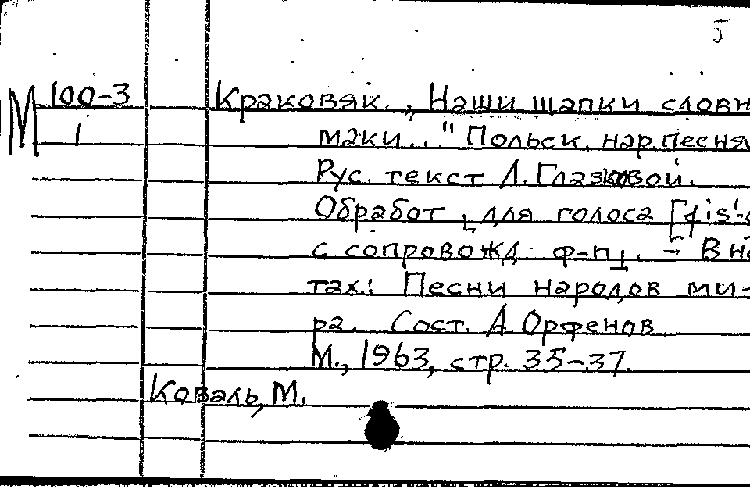 М 100-3
1
Краковяк. „Наши шапки словн
маки..." Польск. нар. песня
Рус. текст Л. Глазковой.
Обработ. для голоса [fis¹-
с сопровожд. ф-п. – В но
тах: Песни народов ми-
ра. Сост. А. Орфенов
М., 1963, стр. 35-37.
Коваль, М.